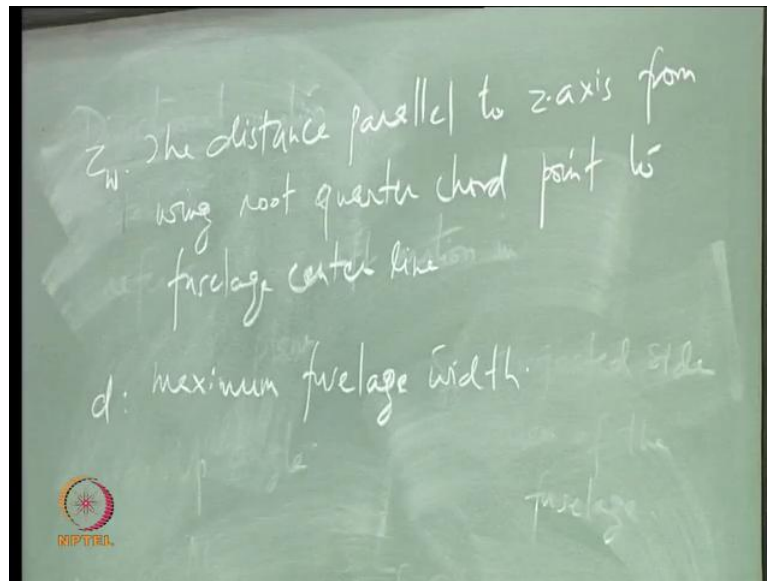 Z_w: The distance parallel to z-axis from
wing root quarter chord point to
fuselage center line
d: maximum fuselage width.
NPTEL